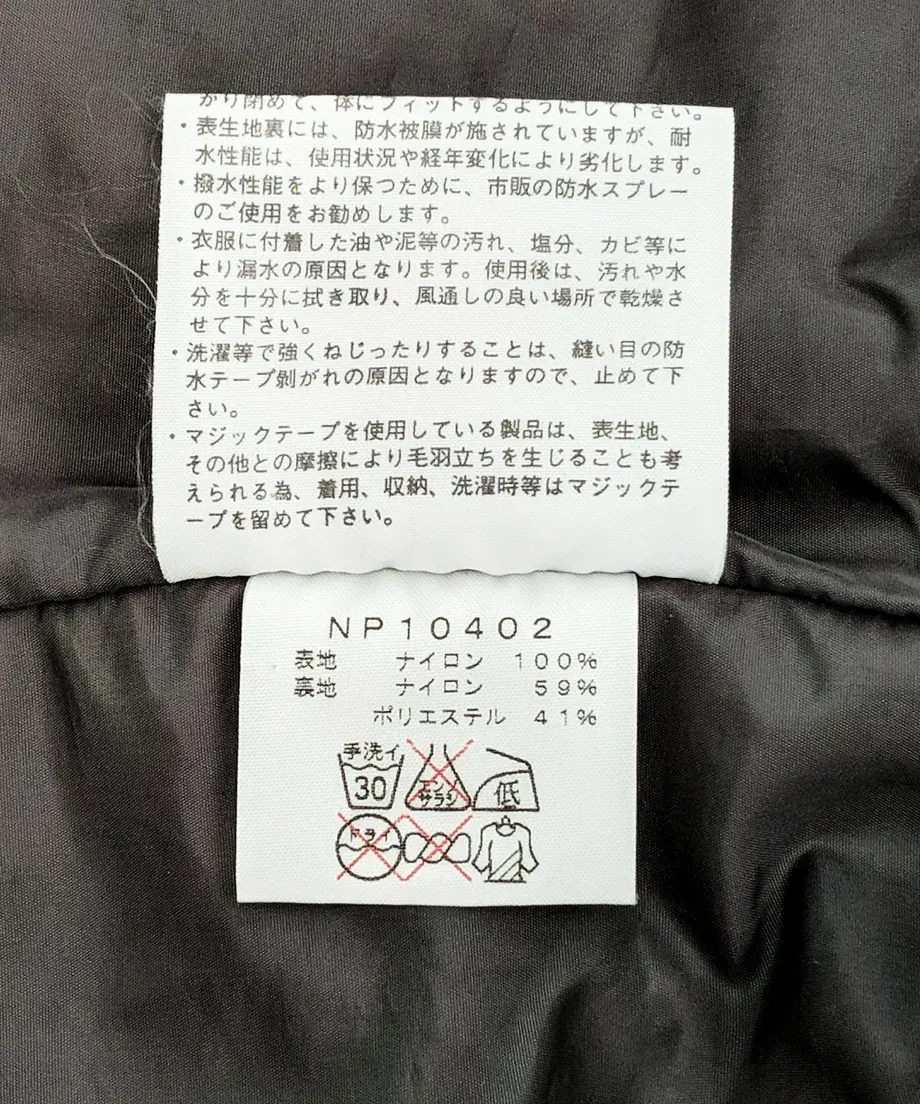 かり閉めて、体にフィットするようにして下さい。
・表生地裏には、防水被膜が施されていますが、耐
水性能は、使用状況や経年変化により劣化します。
・撥水性能をより保つために、市販の防水スプレー
のご使用をお勧めします。
・衣服に付着した油や泥等の汚れ、塩分、カビ等に
より漏水の原因となります。使用後は、汚れや水
分を十分に拭き取り、風通しの良い場所で乾燥さ
せて下さい。
・洗濯等で強くねじったりすることは、縫い目の防
水テープ剝がれの原因となりますので、止めて下
さい。
・マジックテープを使用している製品は、表生地、
その他との摩擦により毛羽立ちを生じることも考
えられる為、着用、収納、洗濯時等はマジックテ
ープを留めて下さい。
NP10402
表地 ナイロン 100%
裏地 ナイロン 59%
ポリエステル 41%
手洗イ
30
エンソ
サラシ
低
ドライ